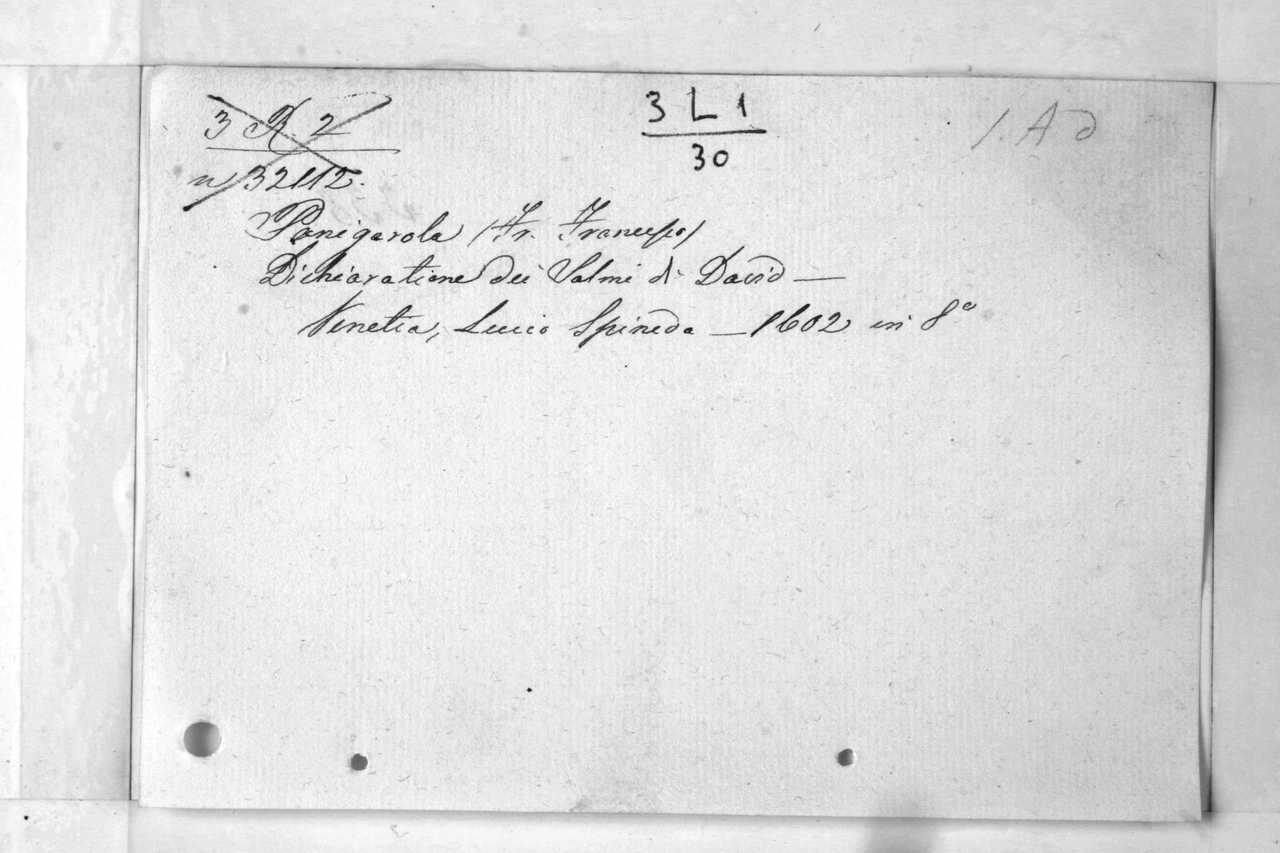 3 R. 2
3 L 1
30
1. A d
n 32112.
Panigarola (Fr. Francesco)
Dichiaratione dei Salmi di David —
Venetia, Lucio Spineda — 1602 in 8°